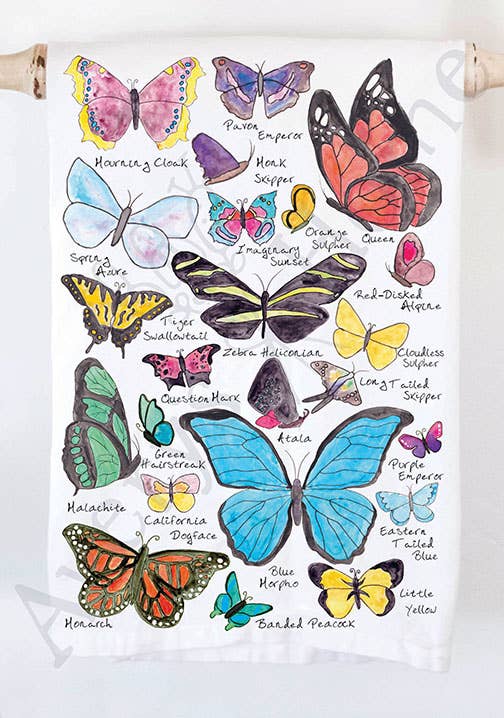 Pavon
Emperor
Mourning Cloak
Monk
Skipper
Orange
Sulpher
Queen
Imaginary
Sunset
Spring
Azure
Red-Disked
Alpine
Tiger
Swallowtail
Zebra Heliconian
Cloudless
Sulpher
Long Tailed
Skipper
Question Mark
Atala
Green
Hairstreak
Purple
Emperor
Malachite
California
Dogface
Eastern
Tailed
Blue
Blue
Morpho
Little
Yellow
Monarch
Banded Peacock